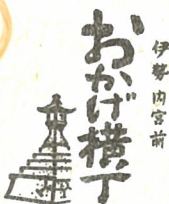 伊勢 内宮前
おかげ横丁